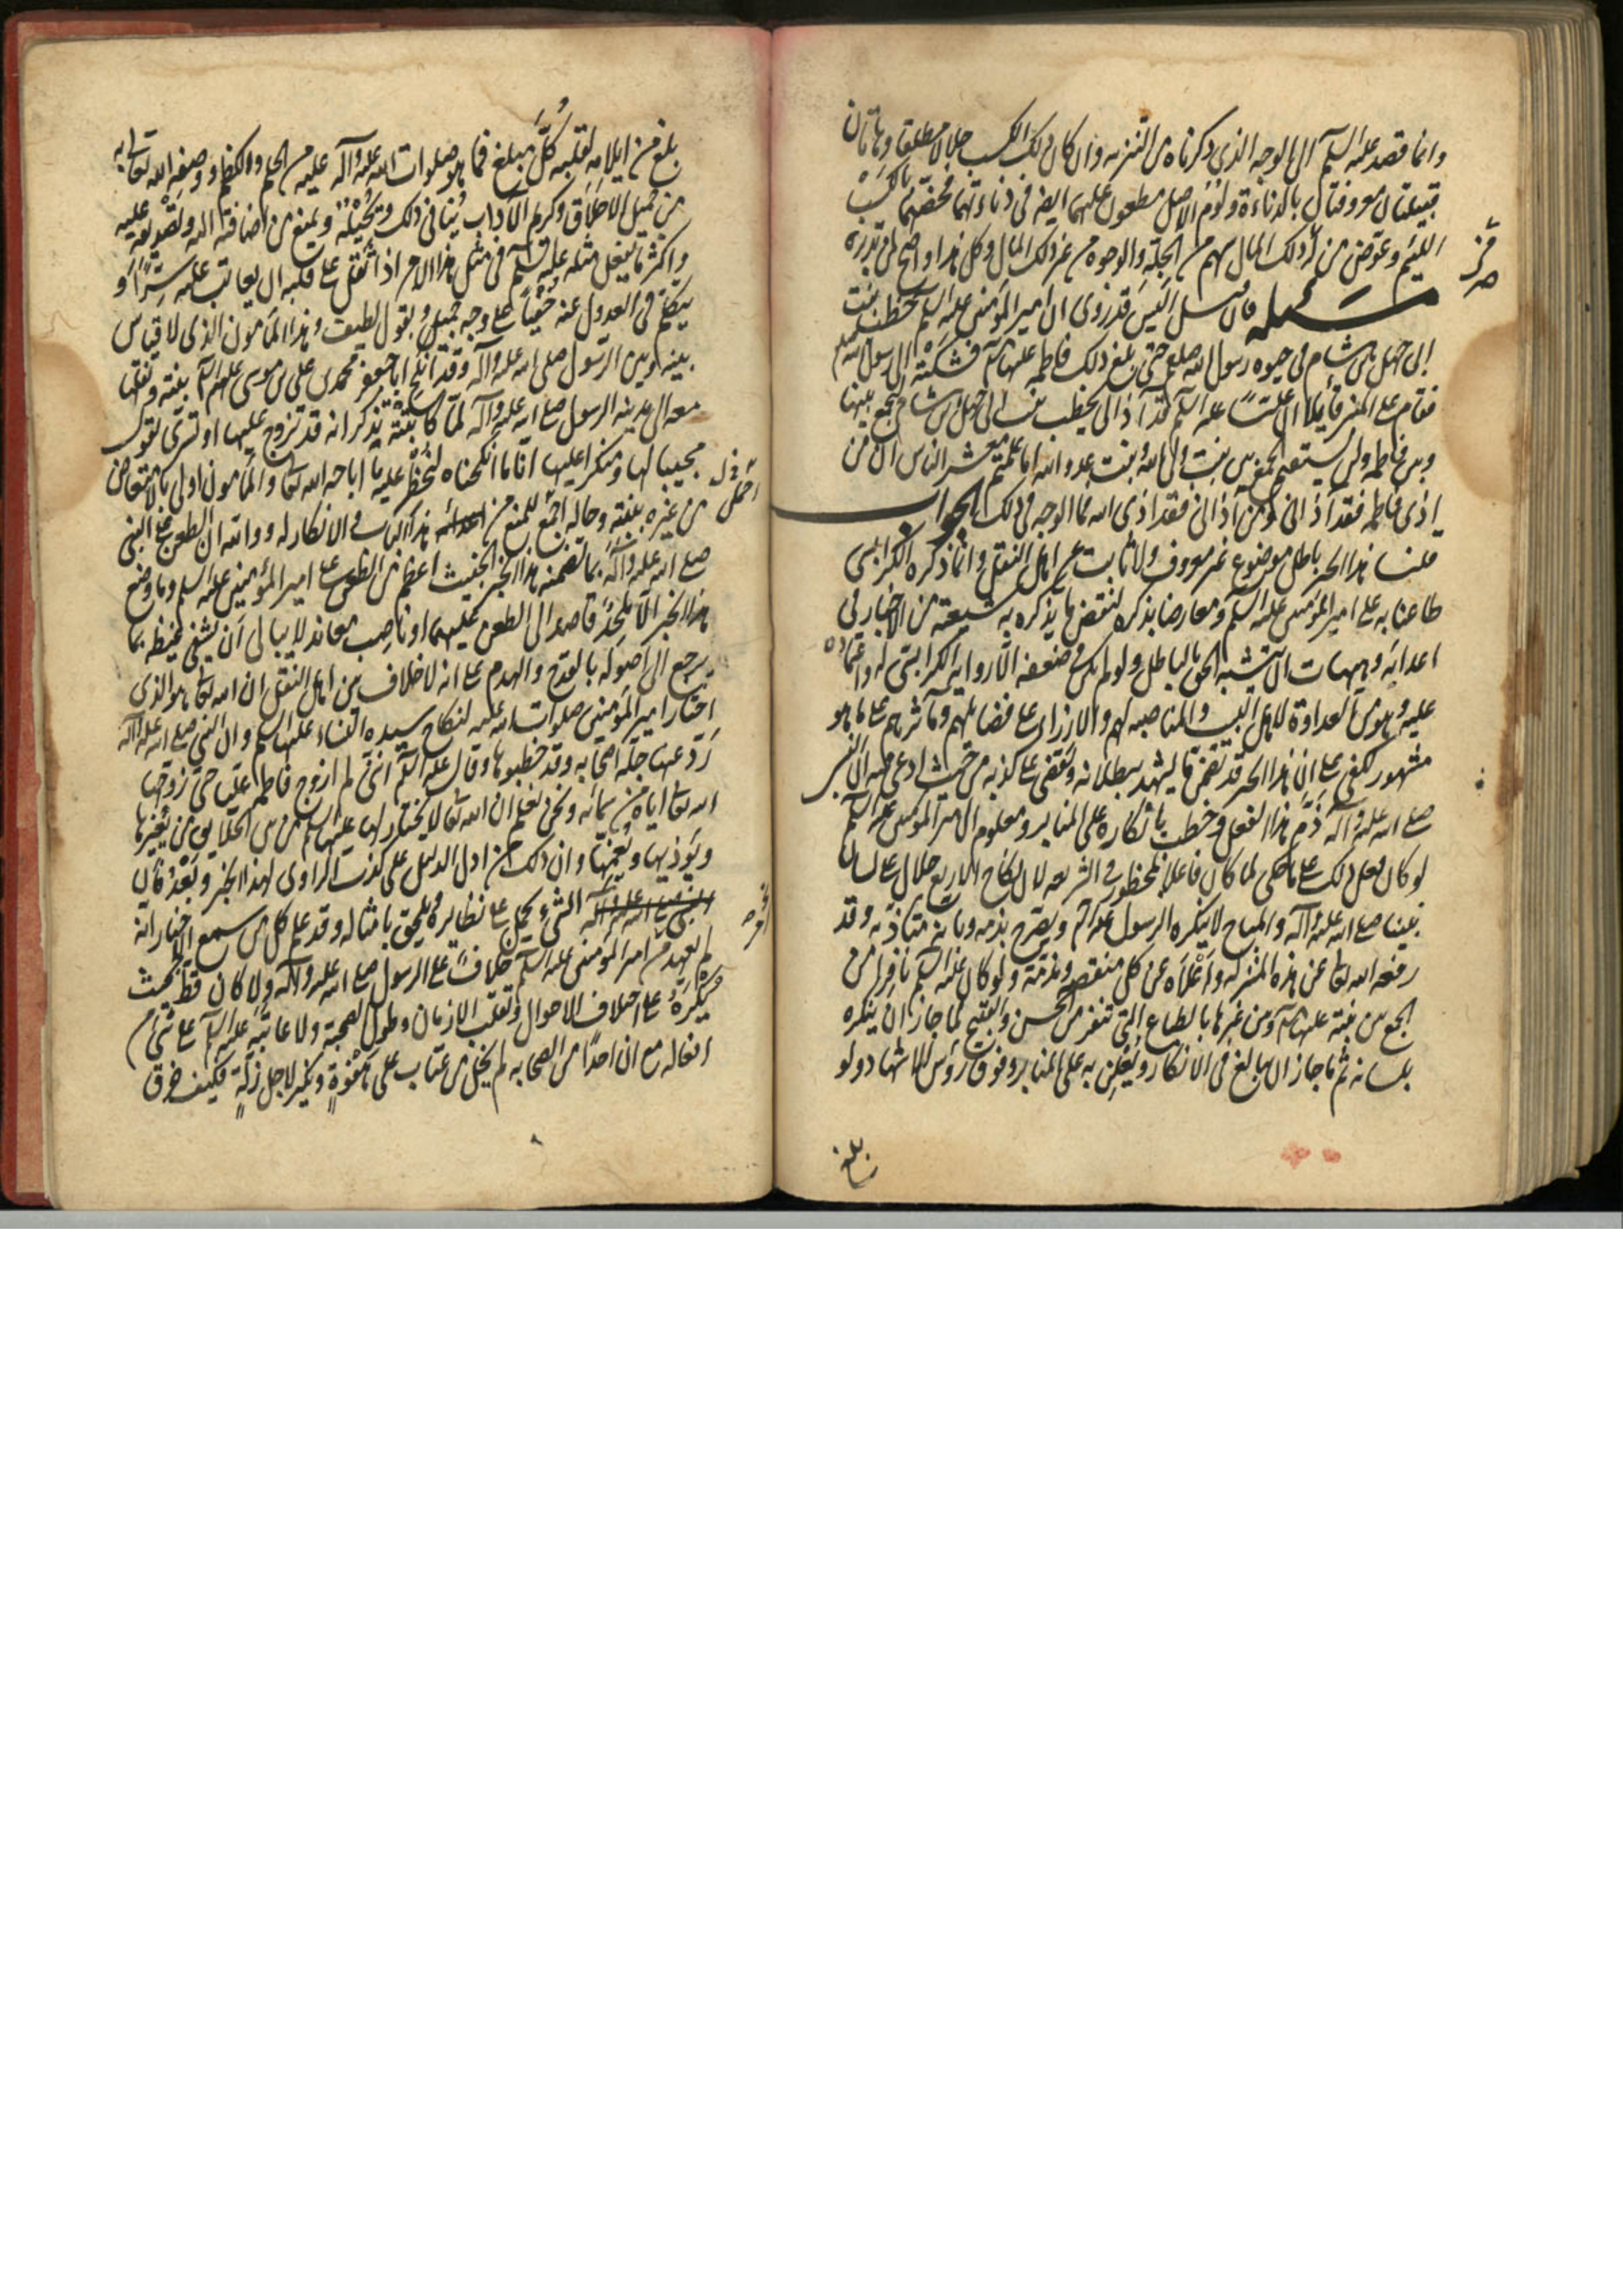 وانما قصد عليه السلم الى الوجه الذي ذكرناه من التنزيه وان كان ذلك الكسب حلالا مطلقا وهاتان
قبيلتان معروفتان بالدناءة ولؤم الاصل مطعون عليهما ايضا في دناءتهما فخصهما بالكسب
اللئيم وعوض من له ذلك المال سهم من الجلة والوجوه من غير ذلك المال وكل هذا واضح لمن تدبره
مسئلة فان سل اليس قد روى ان امير المؤمنين عليه السلم خطب بنت
ابي جهل بن هشام في حيوة رسول الله صلعم حتى بلغ ذلك فاطمة عليها السلم فشكته الى رسول الله صلعم
فقام على المنبر قايلا ان عليا عليه السلم قد آذانى يخطب بنت ابي جهل بن هشام ليجمع بينها
وبين فاطمة ولن يستقيم الجمع بين بنت ولى الله وبنت عدو الله اما علمتم معشر الناس ان من
اذى فاطمة فقد آذانى ومن آذانى فقد اذى الله فما الوجه في ذلك الجواب
قلنا هذا الخبر باطل موضوع غير معروف ولا ثابت عند اهل النقل وانما ذكره الكرابيسى
طاعنا به على امير المؤمنين عليه السلم ومعارضا بذكره لنقض ما يذكره به شيعته من الاخبار في
اعدايه وهيهات ان يشتبه الحق بالباطل ولو لم يكن في ضعفه الا رواية الكرابيسى له واعتماده
عليه وهو من العداوة لاهل البيت والمناصبة لهم والازراء على فضايلهم ومآثرهم على ما هو
مشهور لكفى على ان هذا الخبر قد تضمن ما يشهد ببطلانه وتقضى على كذبه من حيث ادعى فيه ان النبى
صلى الله عليه وآله ذم هذا الفعل وخطب بانكاره على المنابر ومعلوم ان امير المؤمنين عليه السلم
لو كان فعل ذلك على ما حكى لما كان فاعلا لمحظور في الشريعة لان نكاح الاربع حلال على لسان
نبينا صلى الله عليه وآله والمباح لا ينكره الرسول عليه السلم ويصرح بذمه وبانه متأذ به وقد
رفعه الله تعالى عن هذه المنزلة واعلاه عن كل منقصة ومذمة ولو كان عليه السلم نافرا من
الجمع بين بنته عليها السلم ومن غيرها بالطباع التى تنفر من الحسن والقبيح لما جاز ان ينكره
بلسانه ثم ما جاز ان يبالغ في الانكار ويعلن به على المنابر وفوق رؤس الاشهاد ولو
بلغ
بلغ من ايلامه لقلبه كل مبلغ فما هو صلوات الله عليه وآله عليه من الحلم والكظم ووصفه الله تعالى به
من جميل الاخلاق وكريم الآداب ينافى ذلك ويحيله ويمنع من اضافته اليه وتصديقه عليه
واكثر ما يفعل مثله عليه السلم في مثل هذا الامر اذا ثقل على قلبه ان يعاتب عليه سرا و
يتكلم في العدول عنه خفيا على وجه جميل وبقول لطيف وهذا المأمون الذى لا قياس
بينه وبين الرسول صلى الله عليه وآله وقد انكح ابا جعفر محمد بن على بن موسى عليهم السلم بنته ونقلها
معه الى مدينة الرسول صلى الله عليه وآله لما كاتبته بنته تذكر انه قد تزوج عليها او تسرى يقول
مجيبا لها ومنكرا عليها انا ما انكحناه لنحظر عليه ما اباحه الله تعالى والمأمون اولى بالامتعاض
من غيره بنته وحاله اجمع للمنع من هذا الباب والانكار له ووالله ان الطعن على النبى
صلى الله عليه وآله بما تضمنه هذا الخبر الخبيث اعظم من الطعن على امير المؤمنين عليه السلم وما وضع
هذا الخبر الا ملحد قاصد الى الطعن عليهما او ناصب معاند لا يبالى ان يشفى غيظه بما
يرجع الى اصوله بالقدح والهدم على انه لا خلاف بين اهل النقل ان الله تعالى هو الذى
اختار امير المؤمنين صلوات الله عليه لنكاح سيدة النساء عليها السلم وان النبى صلى الله عليه وآله
رد عنها جلة اصحابه وقد خطبوها وقال عليه السلم انى لم ازوج فاطمة عليا حتى زوجها
الله تعالى اياه من سمائه ونحن نعلم ان الله تعالى لا يختار لها عليها السلم من بين الخلايق من يغيرها
ويؤذيها ويغمها وان ذلك من ادل الدليل على كذب الراوى لهذا الخبر وبعد فان
الشىء يحمل على نظائره ويلحق بامثاله وقد علم كل من سمع الاخبار انه
لم يعهد من امير المؤمنين عليه السلم خلافا على الرسول صلى الله عليه وآله ولا كان قط بحيث
يكره على اختلاف الاحوال وتقلب الازمان وطول الصحبة ولا عاتبه عليه السلم على شىء من
افعاله مع ان احدا من اصحابه لم يخل من عتاب على هفوة ونكير لاجل زلة فكيف خرق